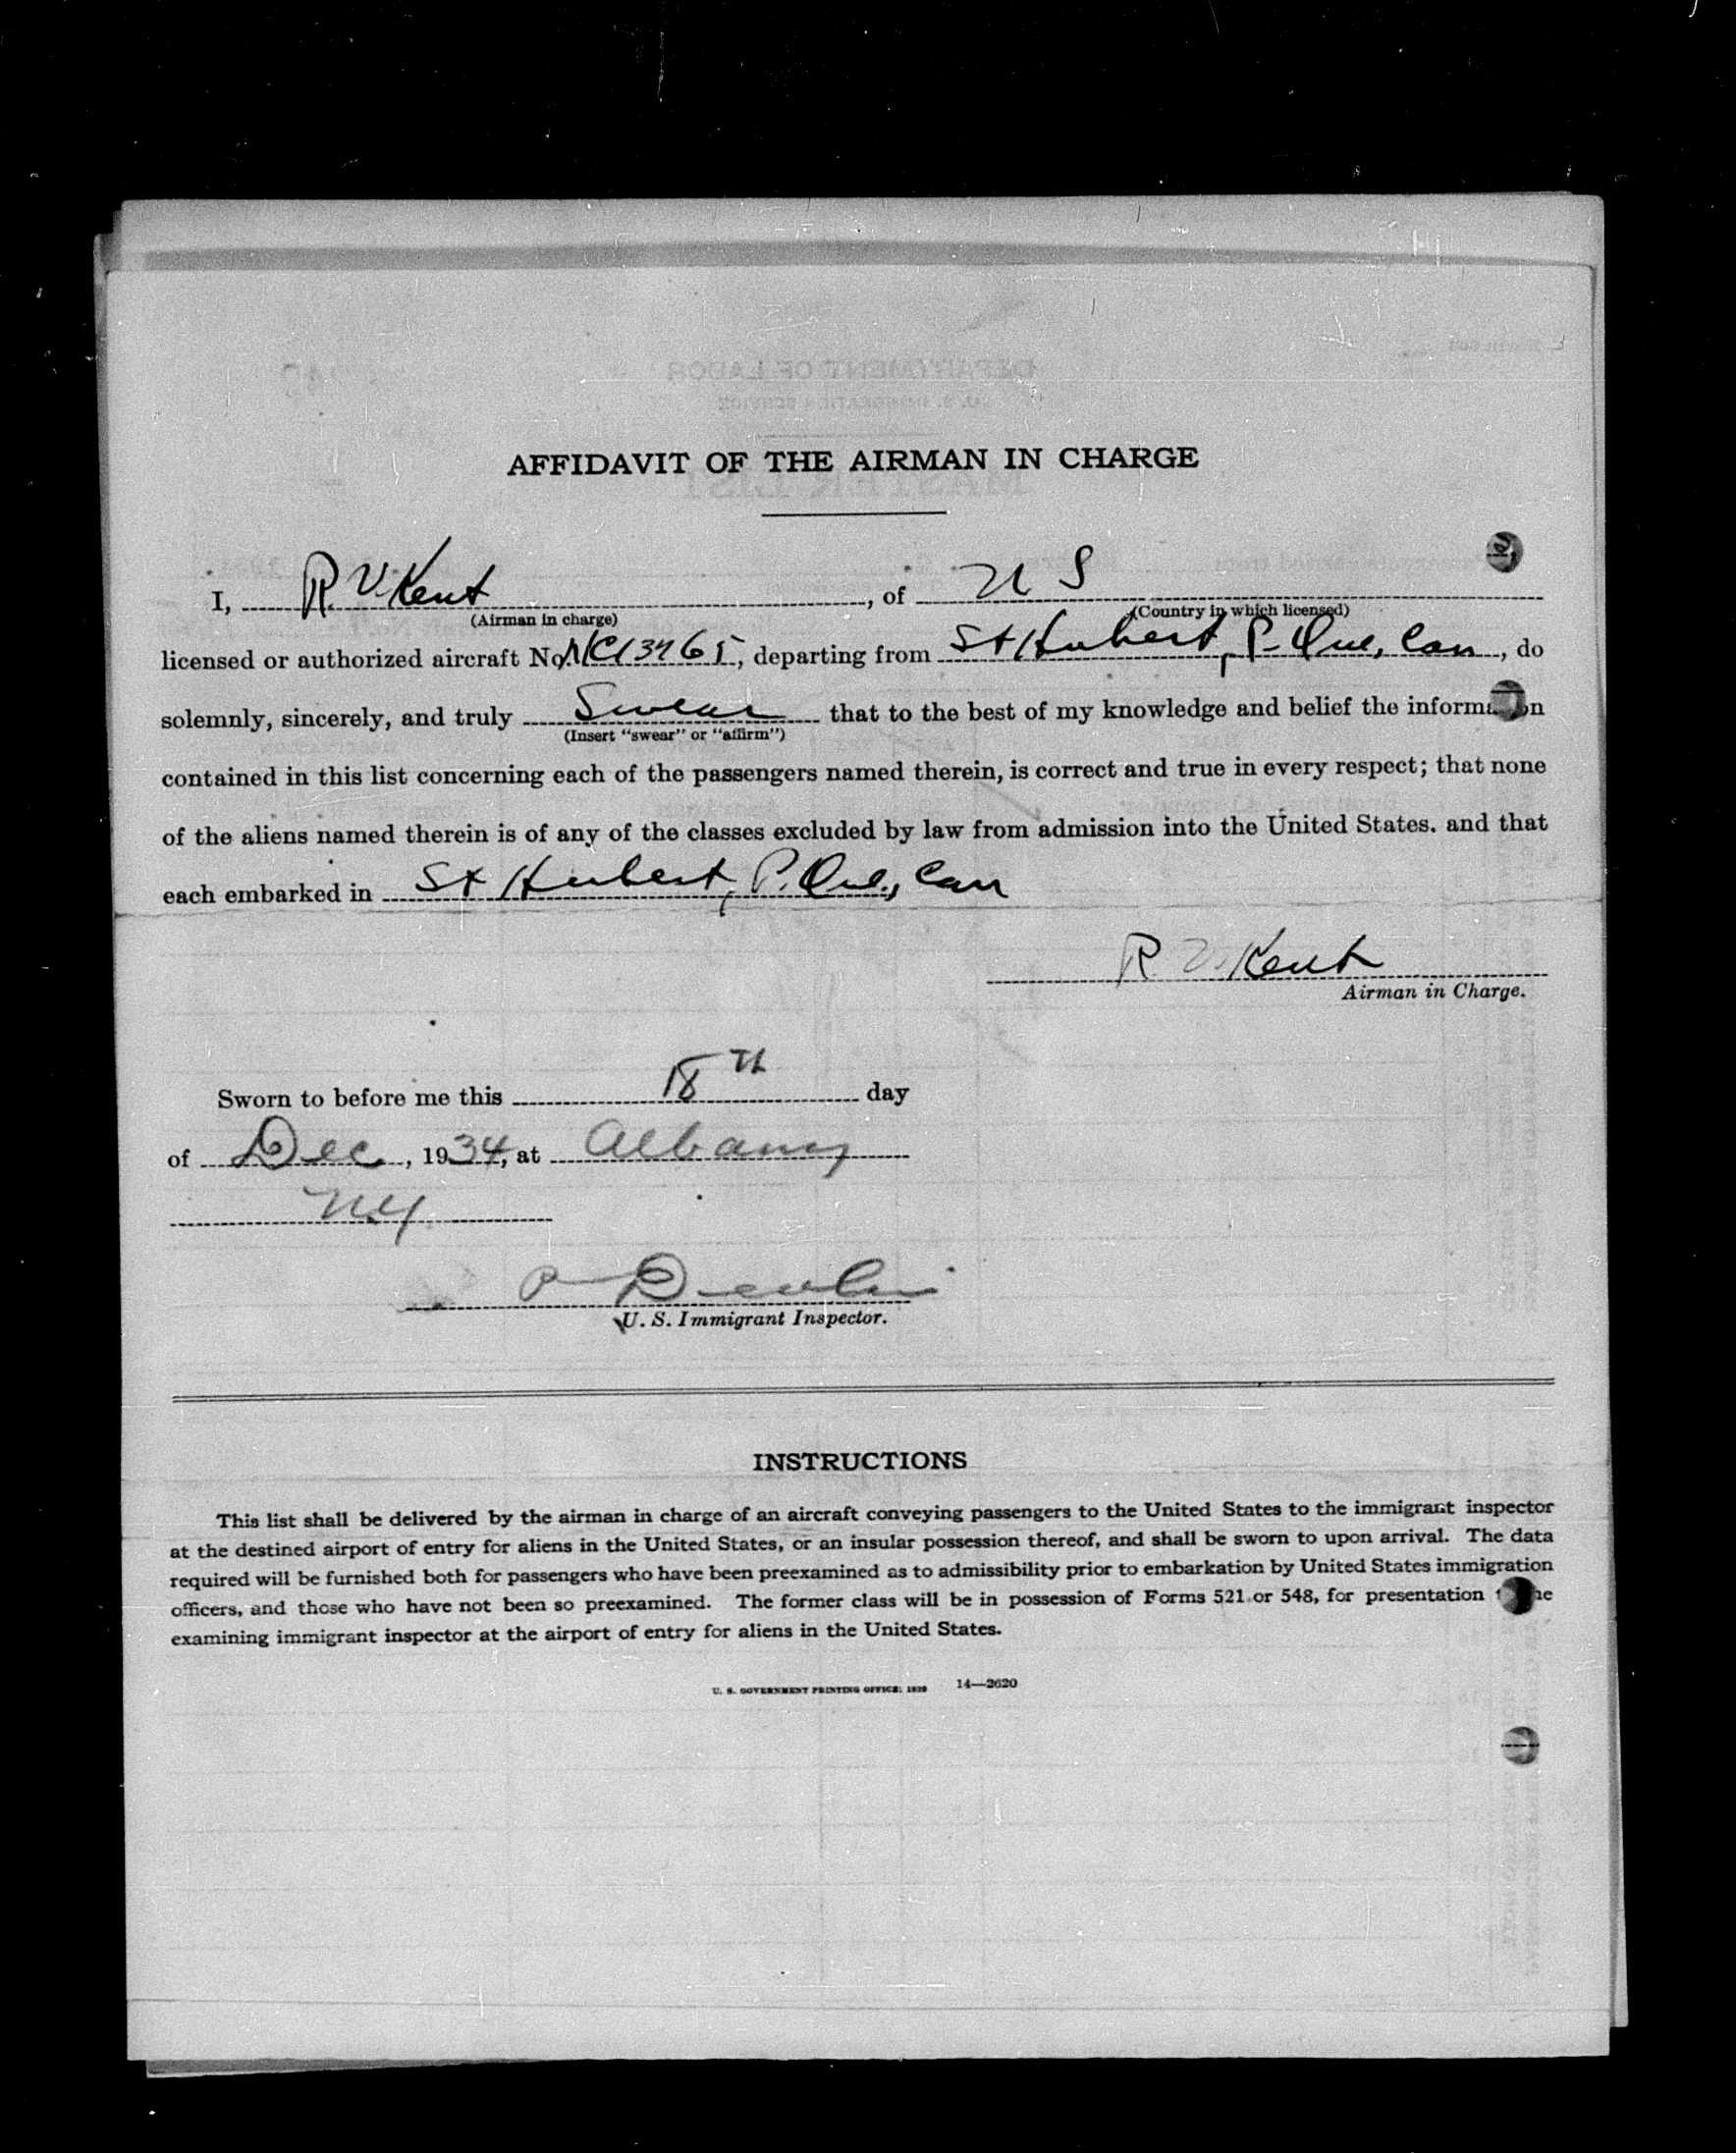 AFFIDAVIT OF THE AIRMAN IN CHARGE
I, R. V. Kent, of U S
(Airman in charge) (Country in which licensed)
licensed or authorized aircraft No. NC13465, departing from St Hubert, P. Que, Can, do
solemnly, sincerely, and truly Swear that to the best of my knowledge and belief the information
(Insert "swear" or "affirm")
contained in this list concerning each of the passengers named therein, is correct and true in every respect; that none
of the aliens named therein is of any of the classes excluded by law from admission into the United States. and that
each embarked in St Hubert, P. Que., Can
R V. Kent
Airman in Charge.
Sworn to before me this 18th day
of Dec, 1934, at Albany
N.Y.
U. S. Immigrant Inspector.
INSTRUCTIONS
This list shall be delivered by the airman in charge of an aircraft conveying passengers to the United States to the immigrant inspector
at the destined airport of entry for aliens in the United States, or an insular possession thereof, and shall be sworn to upon arrival. The data
required will be furnished both for passengers who have been preexamined as to admissibility prior to embarkation by United States immigration
officers, and those who have not been so preexamined. The former class will be in possession of Forms 521 or 548, for presentation to the
examining immigrant inspector at the airport of entry for aliens in the United States.
U. S. GOVERNMENT PRINTING OFFICE: 1929 14—2620